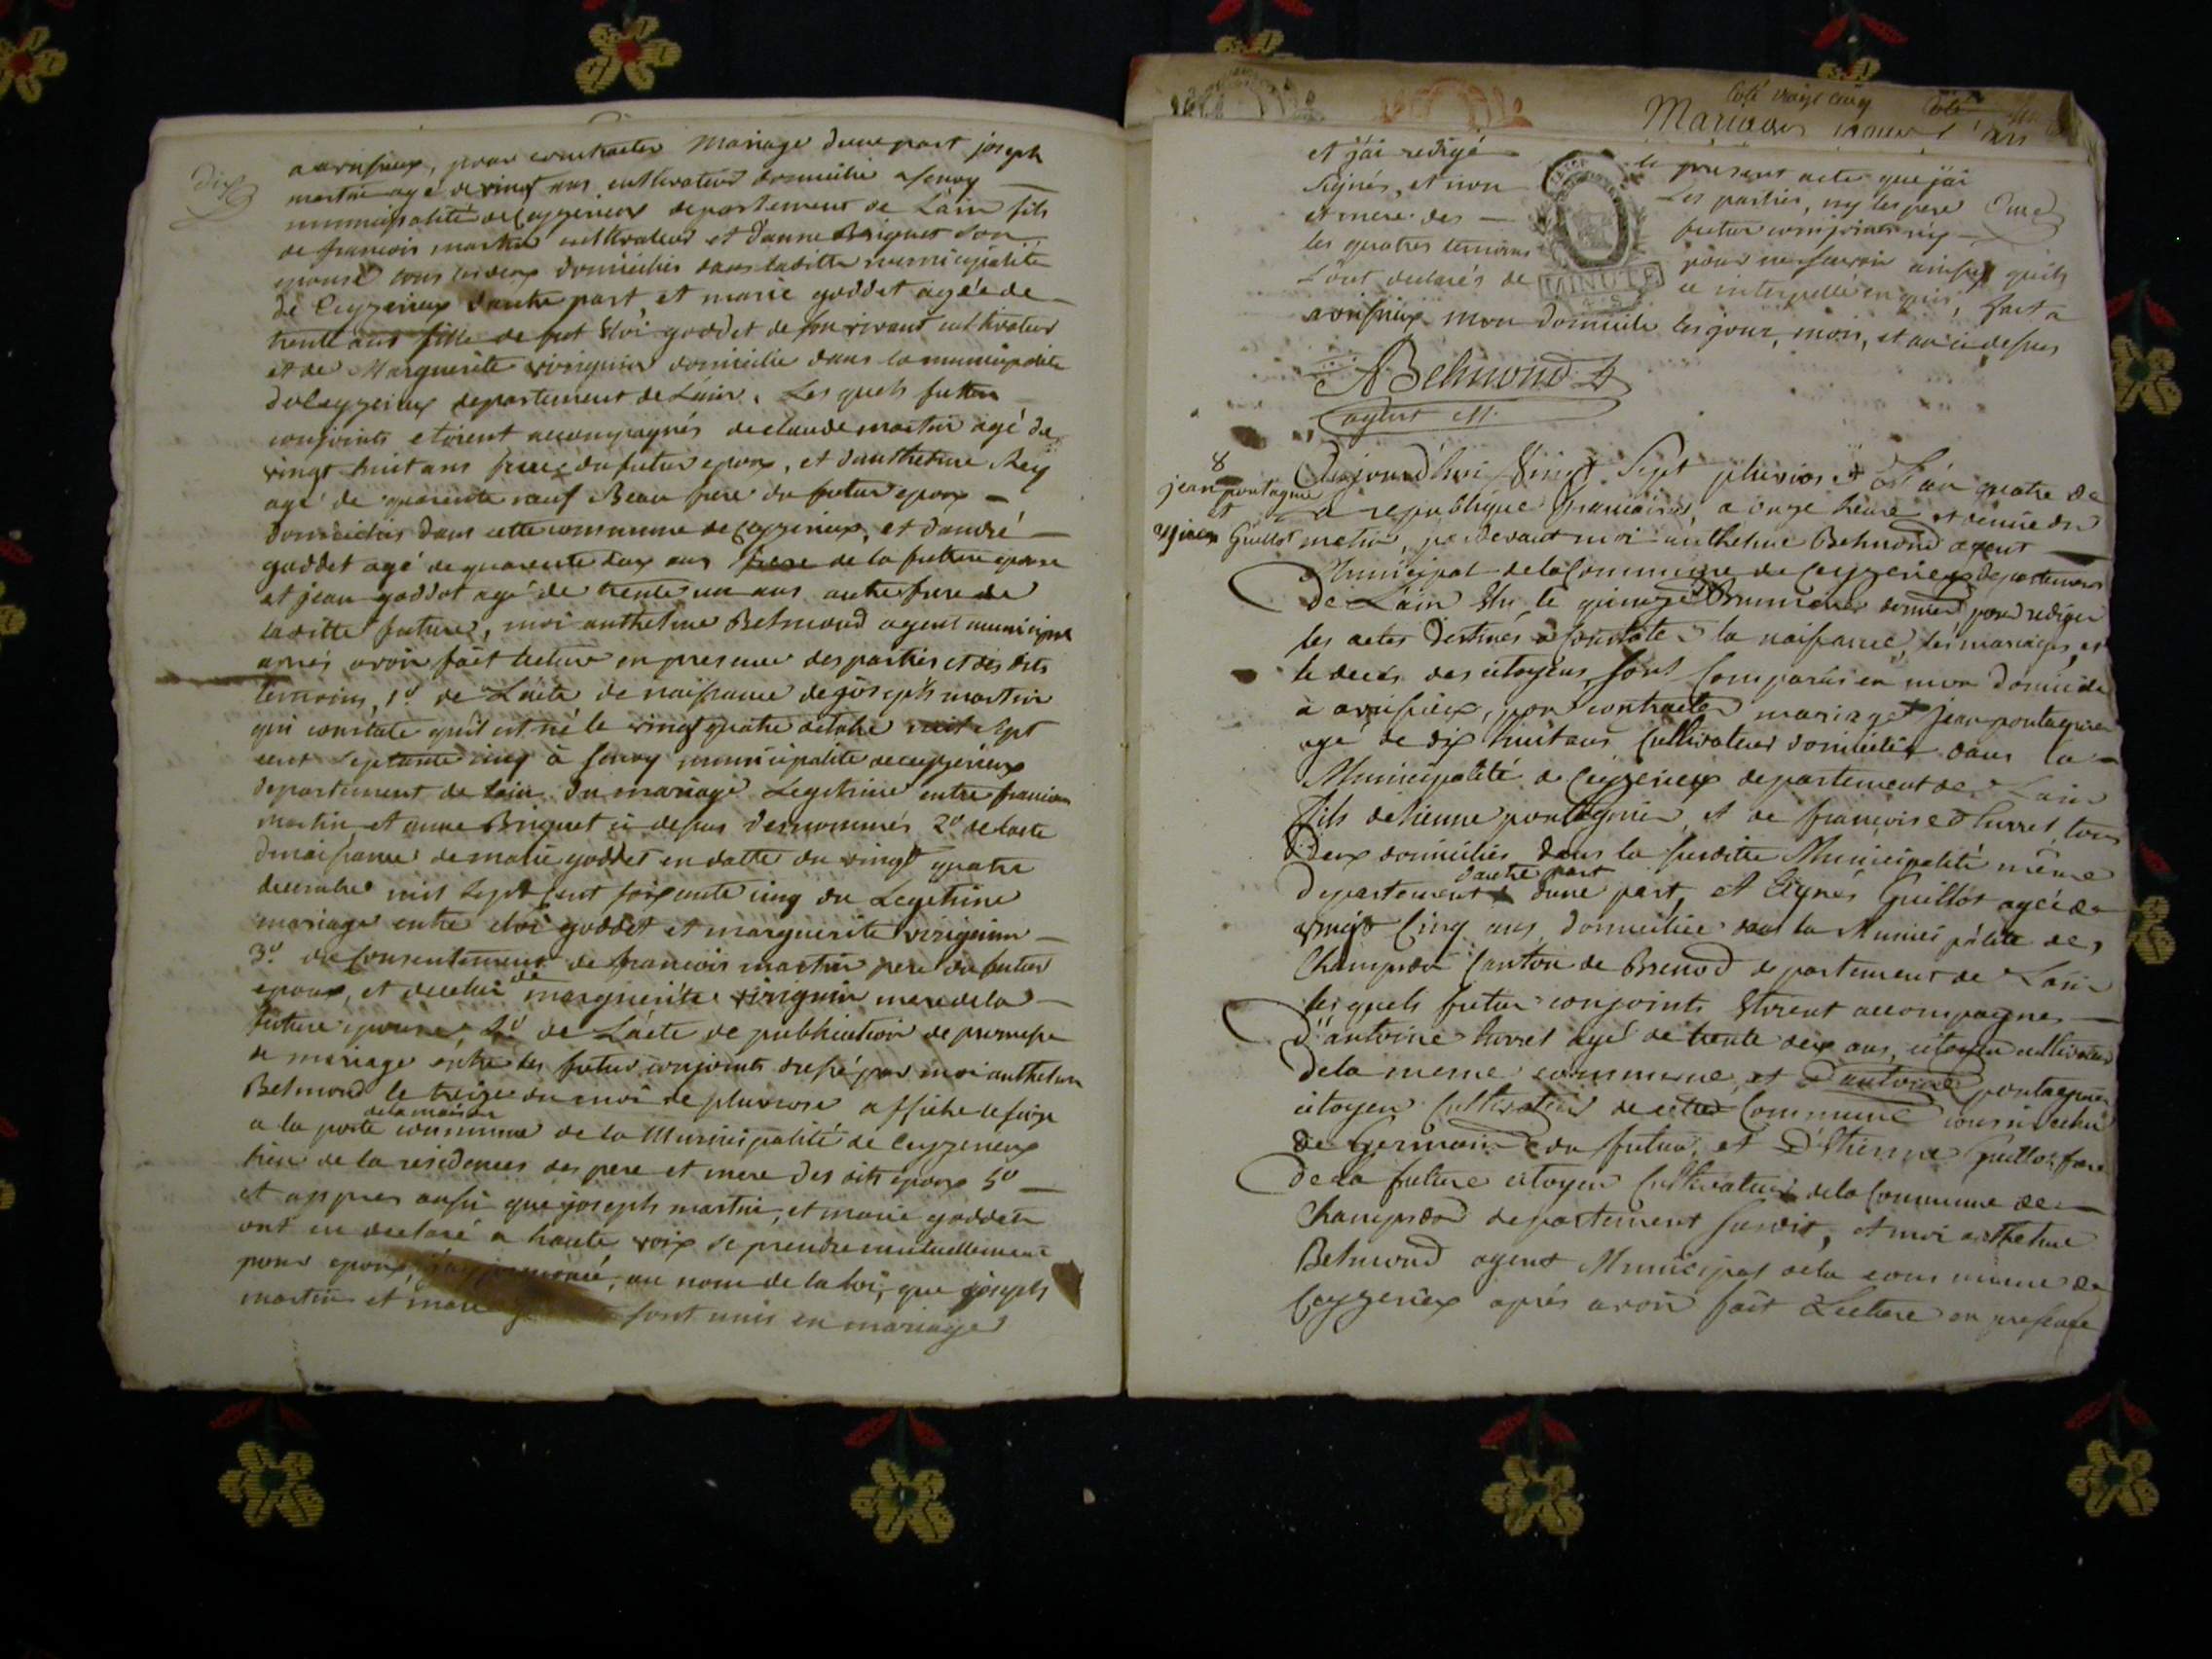 dix
a avrisieux, pour contracter Mariage dune part joseph
martin agé de vingt ans cultivateur domicilié a Senoy
municipalité de Ceyzerieux departement de Lain fils
de francois martin cultivateur et danne Briguet son
epouse tous les deux domiciliés dans laditte municipalité
de Ceyzerieux dautre part, et marie goddet agée de
trente ans fille de feut Eloi goddet de son vivant cultivateur
et de Marguerite viriguin domicilié dans la municipalité
de Ceyzerieux departement de Lain. Les quels futurs
conjoints etoient accompagnés de claude martin agé de
vingt huit ans frere du futur epoux, et danthelme Rey
agé de quarente neuf Beau frere du futur epoux
domiciliés dans cette commune de Ceyzerieux, et dandré
goddet agé de quarente deux ans frere de la future epouse
et jean goddet agé de trente un ans autre frere de
laditte future, moi anthelme Belmond agent municipal
aprés avoir fait lecture en presence des parties et des dits
temoins, 1º de Lacte de naissance de joseph martin
qui constate qu'il est né le vingt quatre octobre mil sept
cent septante cinq à senoy municipalité de ceyzerieux
departement de Lain du mariage Legitime entre francois
martin et anne Briguet ci dessus denommés 2º de Lacte
de naissance de marie goddet en datte du vingt quatre
decembre mil sept cent soixante cinq du Legitime
mariage entre eloi goddet et marguerite viriguin
3º du Consentement de francois martin pere du futur
epoux, et de celui de marguerite viriguin mere de la
future epouse, 4º de Lacte de publication de promesse
de mariage entre les futur conjoints dressé par moi anthelme
Belmond le treize du moi de pluviose affiché le
a la porte de la maison commune de la Municipalité de Ceyzerieux
lieu de la residences des pere et mere des dits epoux 5º
et appres aussi que joseph martin, et marie goddet
ont eu declaré a haute voix se prendre mutuellement
pour epoux, j'ay prononcé, au nom de la loi, que joseph
martin et marie sont unis en mariage
Coté vingt cinq
Mariages
et j'ai redigé le présent acte que j'ai
signés, et non Les parties, ny les pere
et mere des futur conjoints ny
les quatres temoins pour ne savoir ainsy quils
L'ont declarés de ce interpellé enquis, fait a
avrisieux mon domicile les jour, mois, et an ci dessus
MINUTE
ABelmond
agent M.
8
jean pontagnier
et
Guillot
Aujourd'hui Vingt Sept pluviose L'an quatre de
la republique française, a onze heure et demie du
matin, pardevant moi anthelme Belmond agent
Municipal de la Commune de Ceyzerieux departement
de Lain Elu le quinze Brumaire dernier, pour rediger
les actes destinés a constater la naissance, les mariages, et
le decés des citoyens, sont Comparus en mon domicile
a avrisieux, pour contracter mariage jean pontagnier
agé de dix huit ans Cultivateur domicilié dans la
Municipalité de Ceyzerieux departement de Lain
fils detienne pontagnier, et de francoise hurret tous
Deux domiciliés dans la susditte Municipalité même
departement dautre part dune part, et Agnés Guillot agée de
vingt Cinq ans, domiciliée dans la Municipalité de
Champdor Canton de Brenod departement de Lain
les quels futur conjoints Etoient accompagnes
d'antoine hurret agé de trente deux ans, citoyen cultivateur
de la meme commune, et D'antoine pontagnier
citoyen Cultivateur de cette Commune
de Germain du futur, et D'Etienne Guillot frere
De la future citoyen Cultivateur de la Commune de
Champdor departement susdit, et moi anthelme
Belmond agent Municipal de la commune de
Ceyzerieux aprés avoir fait Lecture en presence